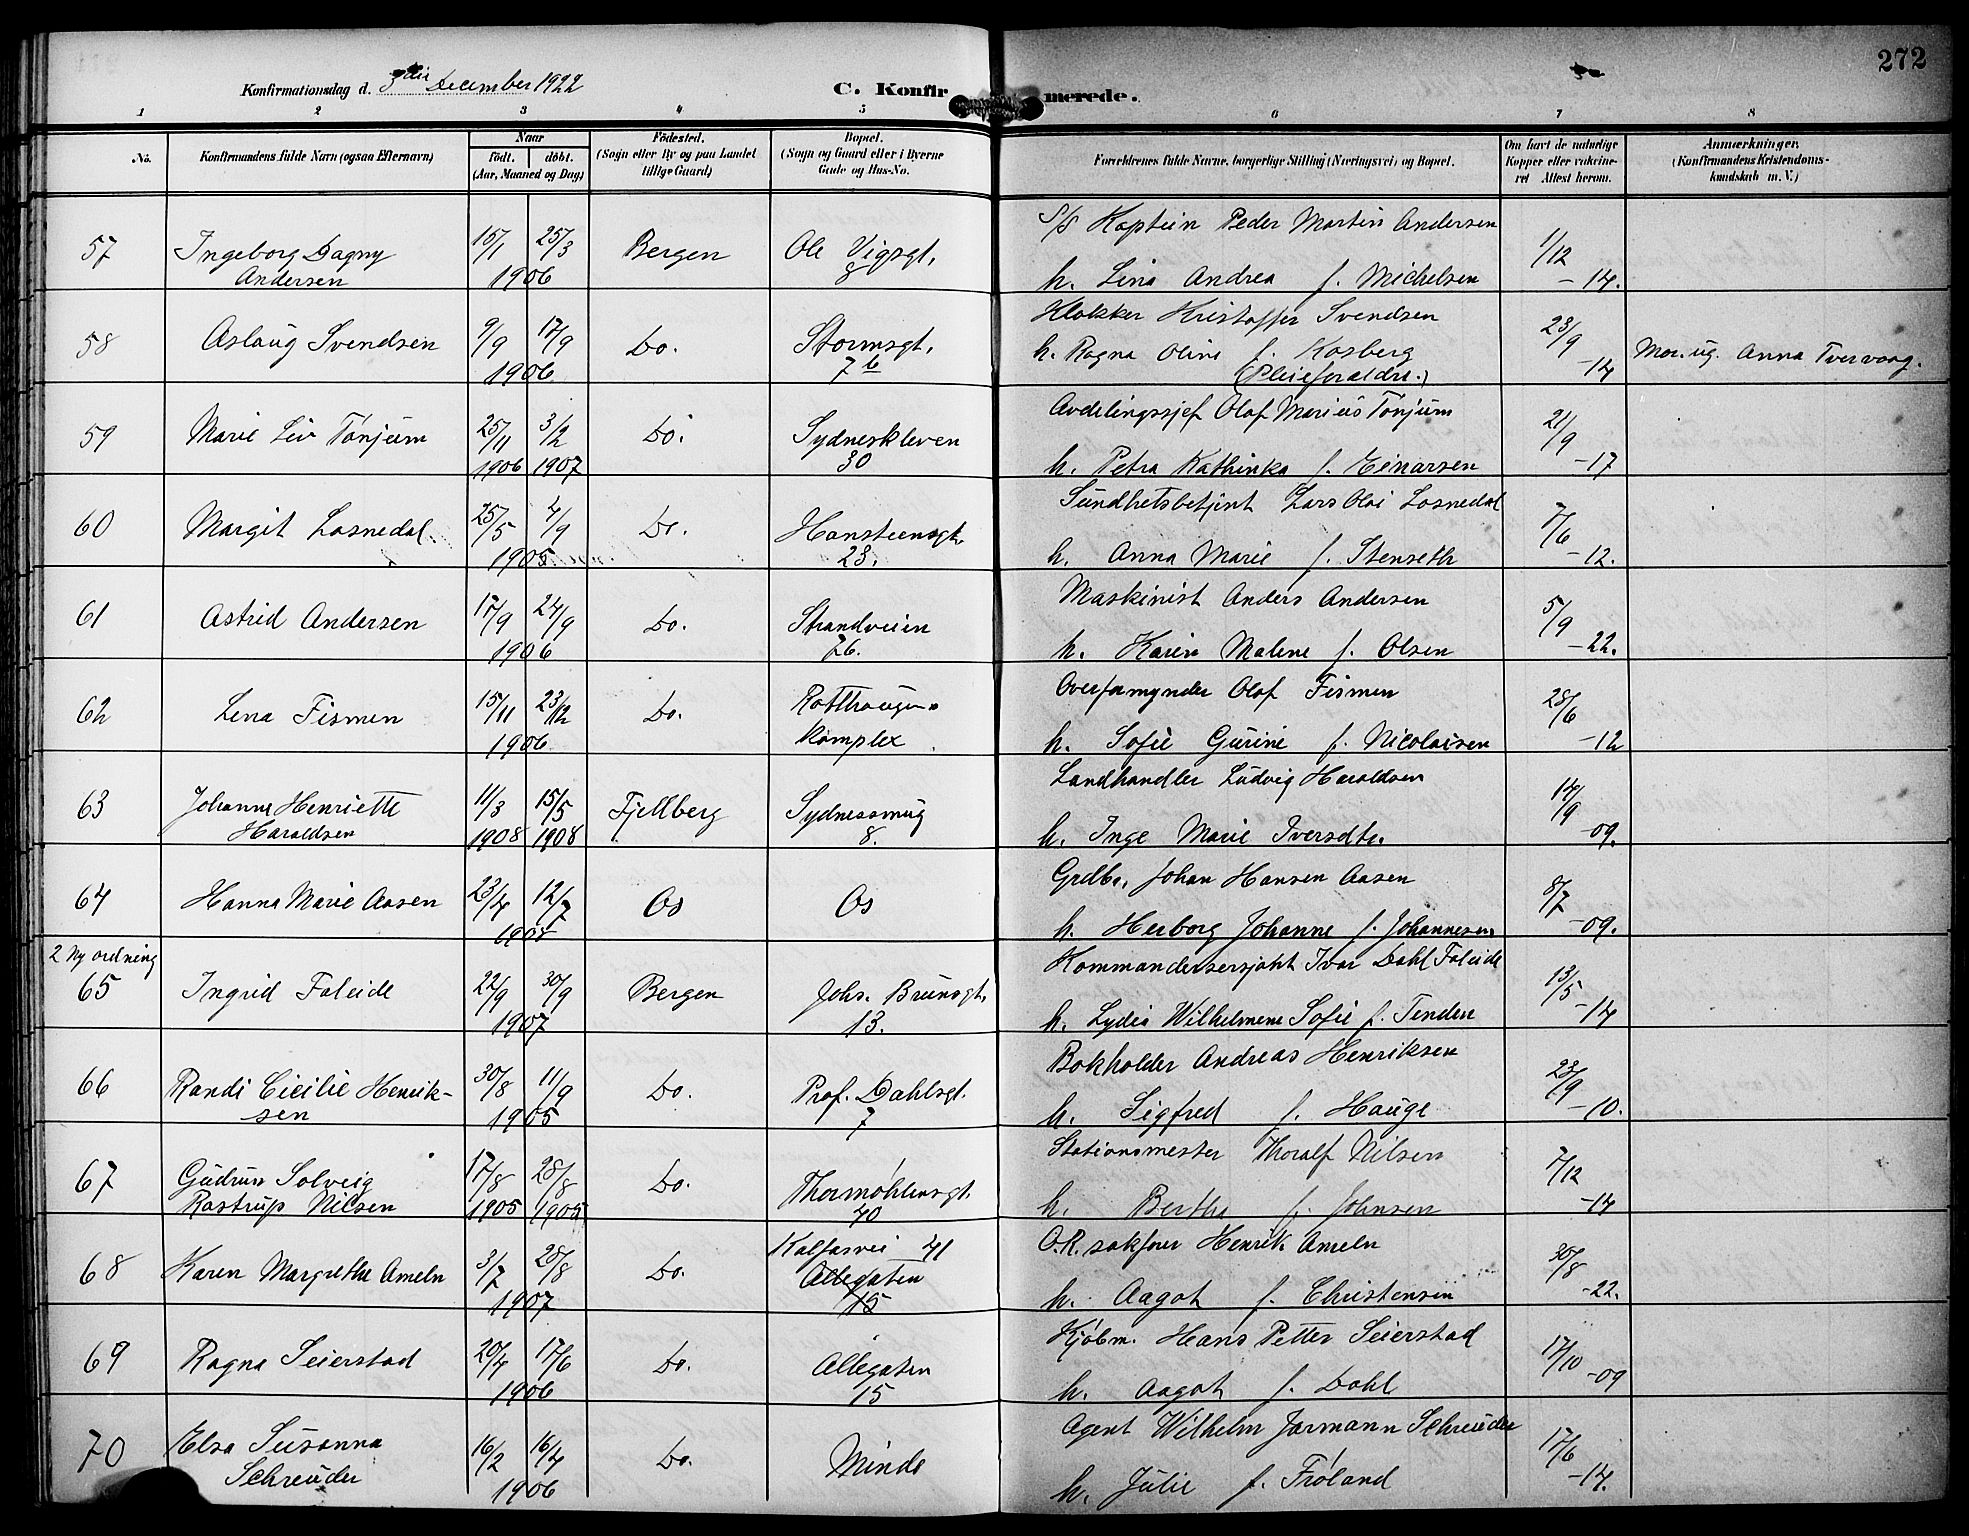 272
Konfirmationsdag d. 3die December 1922
C. Konfirmerede.
1 2 3 4 5 6 7 8
No.
Konfirmandens fulde Navn (ogsaa Efternavn)
Naar
födt. döbt.
(Aar, Maaned og Dag)
Födested.
(Sogn eller By og paa Landet
tillige Gaard)
Bopæl.
(Sogn og Gaard eller i Byerne
Gade og Hus-No.
Forældrenes fulde Navne, borgerlige Stilling (Næringsvei) og Bopæl.
Om havt de naturlige
Kopper eller vakcine-
ret Attest herom.
Anmærkninger.
(Konfirmandens Kristendoms-
kundskab m. V.)
57 Ingeborg Dagny 15/1 25/3 Bergen Ole Vigsgt. S/S Kaptein Peder Martin Andersen 1/12
Andersen 1906 8 h. Lina Andrea f. Michelsen -14.
58 Aslaug Svendsen 9/9 17/9 Do. Stormsgt. Klokker Kristoffer Svendsen 23/9
1906 7 b h. Ragna Oline f. Kosberg -14 Mor: ug. Anna Tvervaag.
(Pleieforældre.)
59 Marie Liv Tönjum 25/11 3/2 Do. Sydneskleven Avdelingssjef Olaf Marius Tönjum 21/9
1906 1907 30 h. Petra Kathinka f. Einarsen -17
60 Margit Losnedal 25/5 4/9 Do. Hansteensgt. Sundhetsbetjent Lars Olai Losnedal 7/6
1905 23. h. Anna Marie f. Stenseth -12.
61 Astrid Andersen 17/9 24/9 Do. Strandveien Maskinist Anders Andersen 5/9
1906 76. h. Karen Malene f. Olsen -22.
62 Lena Fismen 15/11 23/12 Do. Rothaugen Overformynder Olaf Fismen 28/6
1906 komplex h. Sofie Gurine f. Nicolaisen -12
63 Johanne Henriette 11/3 15/5 Fjellberg Sydnessmug Landhandler Ludvig Haraldsen 14/9
Haraldsen 1908 1908 8. h. Inge Marie Iversdtr. -09.
64 Hanna Marie Aasen 23/4 12/7 Os Os Grdbr. Johan Hansen Aasen 8/7
1908 h. Herborg Johanne f. Johannesen -09.
2 Ny ordning
65 Ingrid Faleide 22/9 30/9 Bergen Johs. Brunsgt. Kommandersersjant Ivar Dahl Faleide 13/5
1907 13. h. Lydia Wilhelmene Sofie f. Tenden -14
66 Randi Cicilie Henrik- 30/8 11/9 Do. Prof. Dahlsgt. Bokholder Andreas Henriksen 23/9
sen 1905 7 h. Sigfred f. Hauge -10.
67 Gudrun Solveig 17/8 28/8 Do. Thormöhlensgt. Stationsmester Thoralf Nilsen 7/12
Rastrup Nilsen 1905 1905 40 h. Bertha f. Johnsen -14
68 Karen Margrethe Ameln 3/7 28/8 Do. Kalfarvei 41 O.R. sakförer Henrik Ameln 30/8
Allegaten
1907 15 h. Aagot f. Christensen -22.
69 Ragna Seierstad 20/4 17/6 Do. Allegaten Kjöbm. Hans Petter Seierstad 17/10
1906 15 h. Aagot f. Dahl -09
70 Elsa Susanna 16/2 16/4 Do. Minde Agent Wilhelm Jarmann Schreuder 17/6
Schreuder 1906 h. Julie f. Fröland -14.